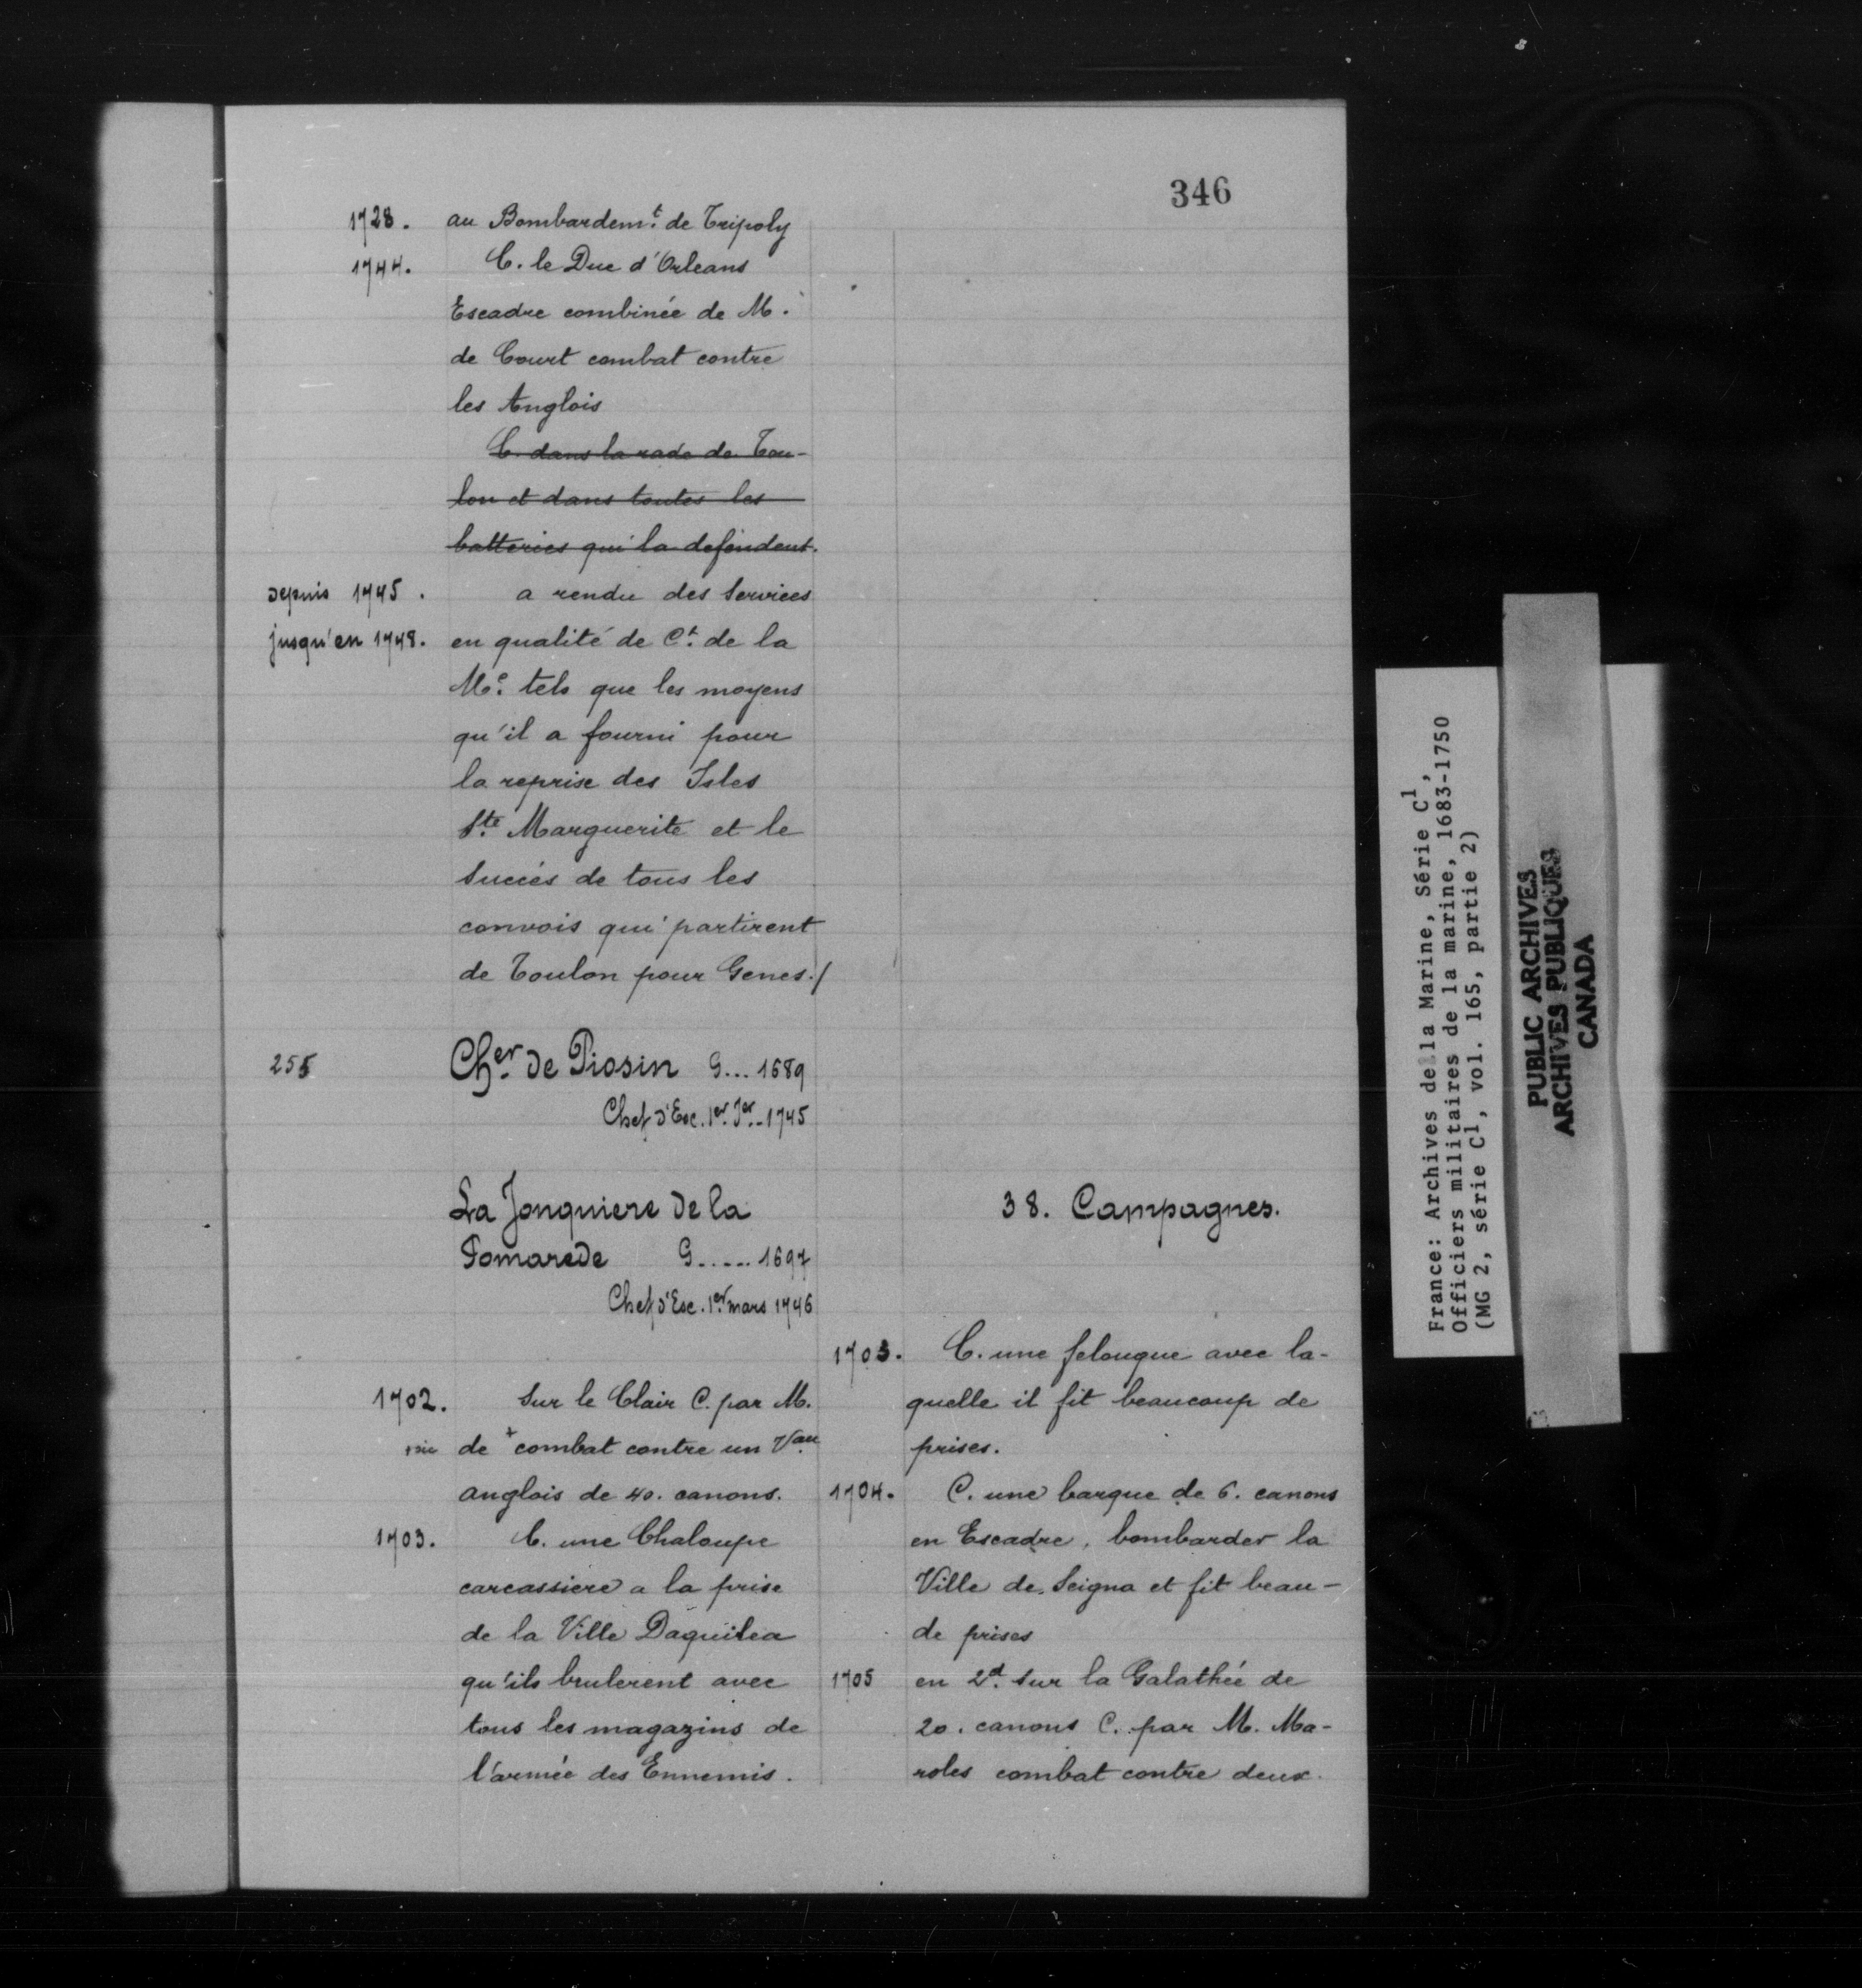 346
1728. au Bombardem.t de Tripoly
1744. C. le Duc d'Orleans
Escadre combinée de M.
de Court combat contre
les Anglois
C. dans la rade de Tou-
lon et dans toutes les
batteries qui la defendent.
depuis 1745. a rendu des Services
jusqu'en 1748. en qualité de C.t de la
M.e tels que les moyens
qu'il a fourni pour
la reprise des Isles
S.te Marguerite et le
Succés de tous les
convois qui partirent
de Toulon pour Genes./
255 Ch.er de Piosin G... 1689
Chef d'Esc. 1.er J.er - 1745
La Jonquiere de la
Pomarede G..... 1697
Chef d'Esc. 1.er mars 1746
1702. Sur le Clair C. par M.
+sic de + combat contre un V.au
anglois de 40. canons.
1703. C. une Chaloupe
carcassiere a la prise
de la Ville Daquilea
qu'ils brulerent avec
tous les magazins de
l'armée des Ennemis.
38. Campagnes.
1703. C. une felouque avec la-
quelle il fit beaucoup de
prises.
1704. C. une barque de 6. canons
en Escadre, bombarder la
Ville de Seigna et fit beau-
de prises
1705 en 2.d Sur la Galathée de
20. canons C. par M. Ma-
roles combat contre deux
France: Archives de la Marine, Série C1,
Officiers militaires de la marine, 1683-1750
(MG 2, série C1, vol. 165, partie 2)
PUBLIC ARCHIVES
ARCHIVES PUBLIQUES
CANADA